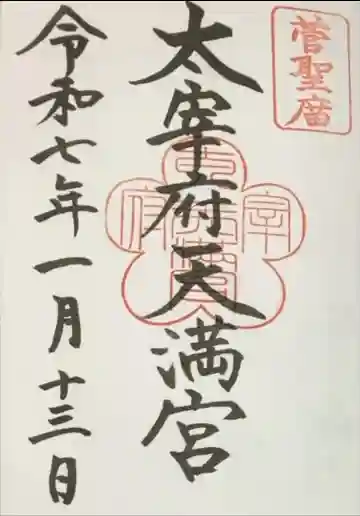 菅聖庿
太宰府天満宮
令和七年一月十三日